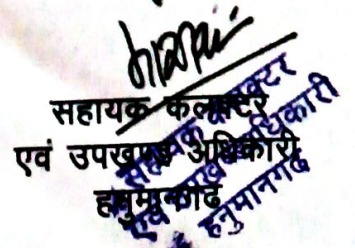 सहायक कलक्टर
एवं उपखण्ड अधिकारी
हनुमानगढ
सहायक कलक्टर
एवं उपखण्ड अधिकारी
हनुमानगढ